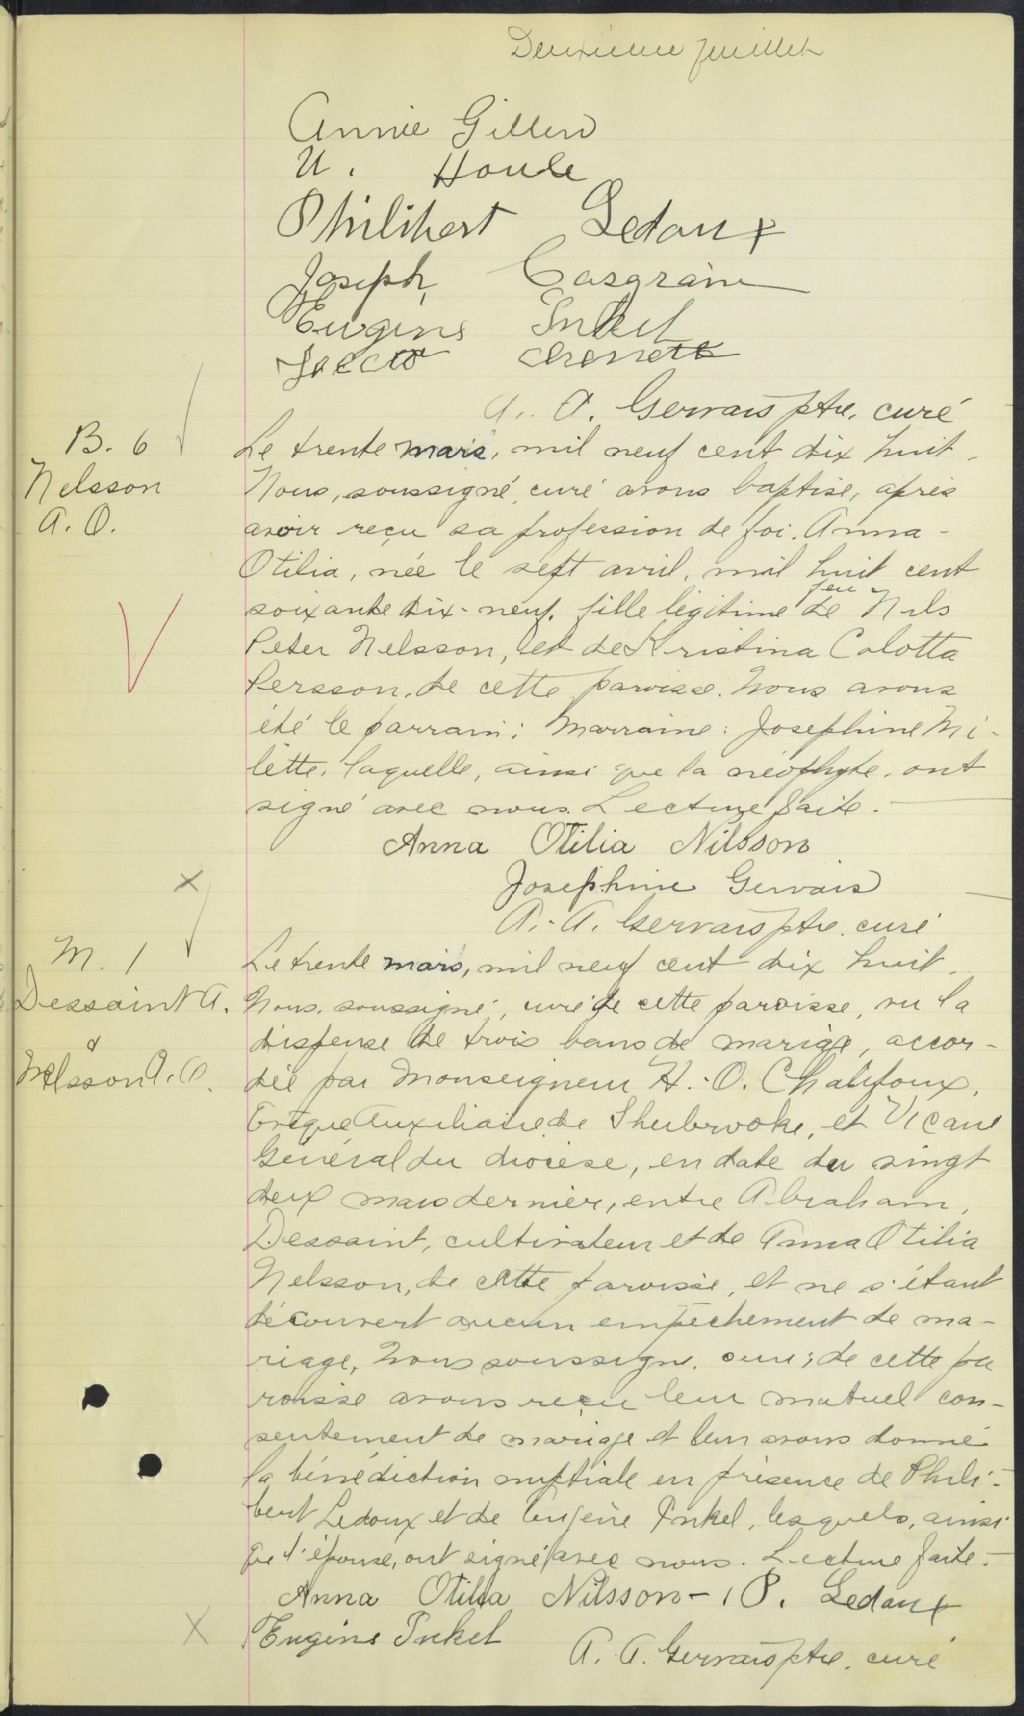 Deuxieme feuillet
Annie Gillen
U. Houle
Philibert Ledoux
Joseph Casgrain
Eugène Inkel
A. A. Gervais ptre. curé
B. 6
Nelsson
A. O.
Le trente mars, mil neuf cent dix huit,
Nous, soussigné, curé avons baptisé, après
avoir reçu sa profession de foi, Anna-
Otilia, née le sept avril, mil huit cent
soixante dix-neuf, fille légitime de feu Nils
Peter Nelsson, et de Kristina Colotta
Persson, de cette paroisse. Nous avons
été le parrain; Marraine: Josephine Mi-
lette, laquelle, ainsi que la néophyte, ont
signé avec nous. Lecture faite.
Anna Otilia Nilsson
Josephine Gervais
A. A. Gervais ptre. curé
M. 1
Dessaint A.
&
Nelsson A. O.
Le trente mars, mil neuf cent dix huit,
Nous, soussigné, curé de cette paroisse, vu la
dispense de trois bans de mariage, accor-
dée par Monseigneur H.-O. Chalifoux,
Evêque Auxiliaire de Sherbrooke, et Vicaire
Général du diocèse, en date du vingt
deux mars dernier, entre Abraham,
Dessaint, cultivateur et de Anna Otilia
Nelsson, de cette paroisse, et ne s'étant
découvert aucun empêchement de ma-
riage, Nous soussigné, curé de cette pa
roisse avons reçu leur mutuel con-
sentement de mariage et leur avons donné
la bénédiction nuptiale en présence de Phili-
bert Ledoux et de Eugène Inkel, lesquels, ainsi
que l'épouse, ont signé avec nous. Lecture faite.-
Anna Otilia Nilsson - P. Ledoux
Eugène Inkel
A. A. Gervais ptre. curé